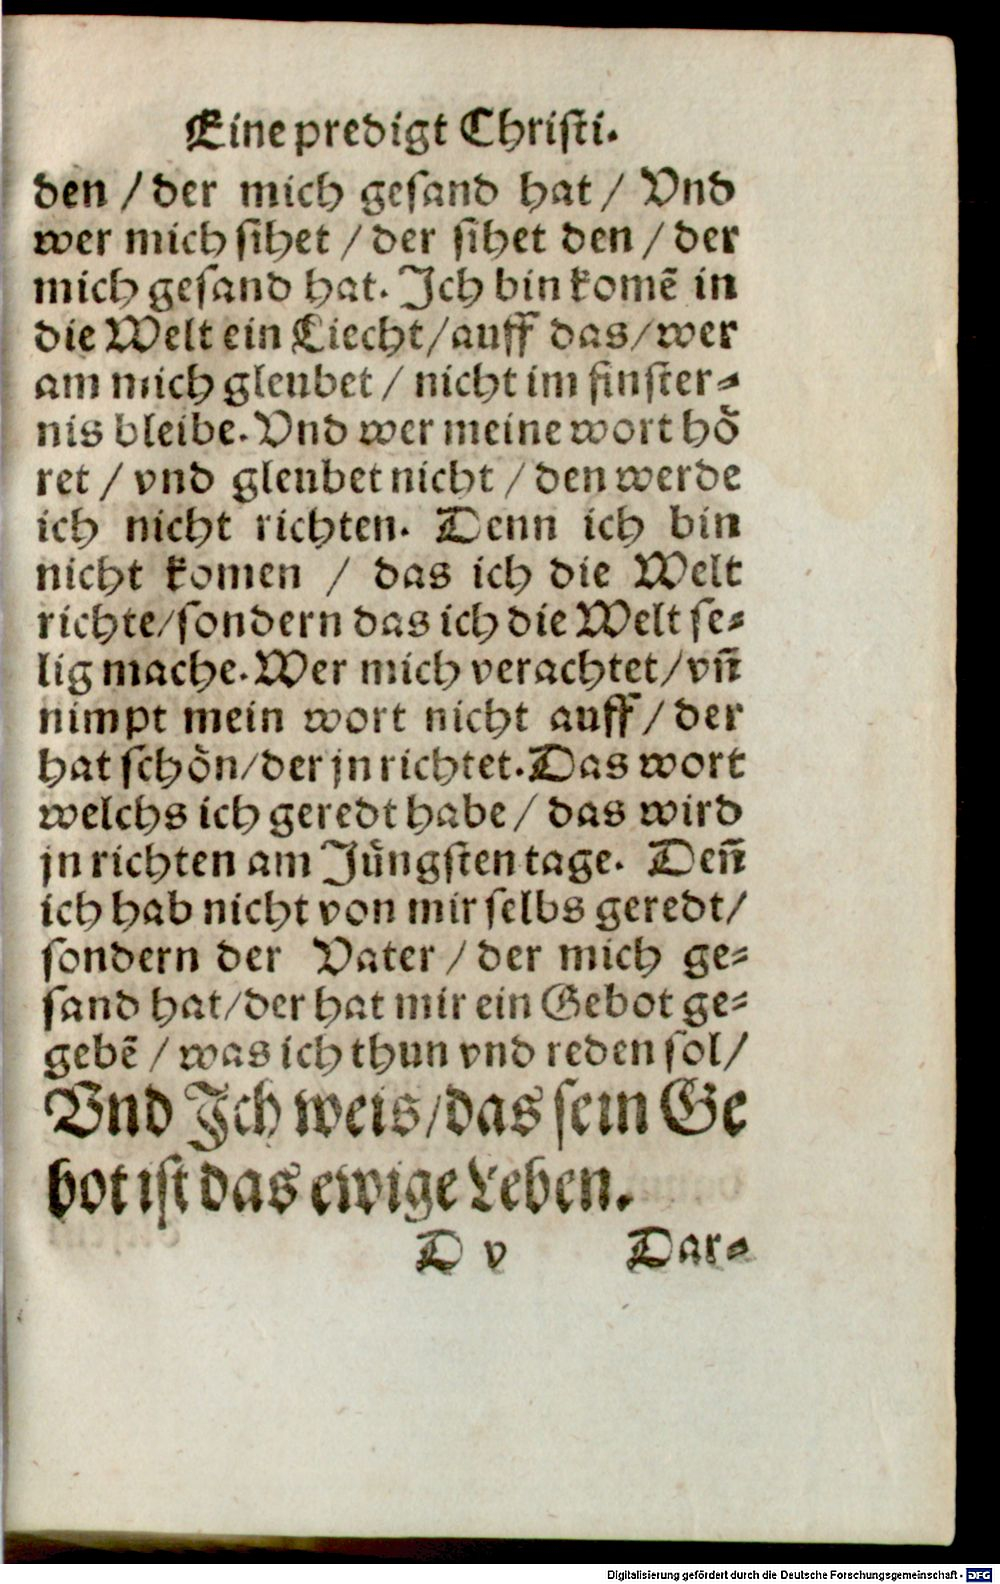 Eine predigt Christi.
den / der mich gesand hat / Vnd
wer mich sihet / der sihet den / der
mich gesand hat. Jch bin komē in
die Welt ein Liecht / auff das / wer
am mich gleubet / nicht im finster-
nis bleibe. Vnd wer meine wort hoͤ
ret / vnd gleubet nicht / den werde
ich nicht richten. Denn ich bin
nicht komen / das ich die Welt
richte / sondern das ich die Welt se-
lig mache. Wer mich verachtet / vn̄
nimpt mein wort nicht auff / der
hat schoͤn / der jn richtet. Das wort
welchs ich geredt habe / das wird
jn richten am Juͤngsten tage. Den̄
ich hab nicht von mir selbs geredt /
sondern der Vater / der mich ge-
sand hat / der hat mir ein Gebot ge-
gebē / was ich thun vnd reden sol /
Vnd Jch weis / das sein Ge
bot ist das ewige Leben.
D v Dar-
Digitalisierung gefördert durch die Deutsche Forschungsgemeinschaft - DFG